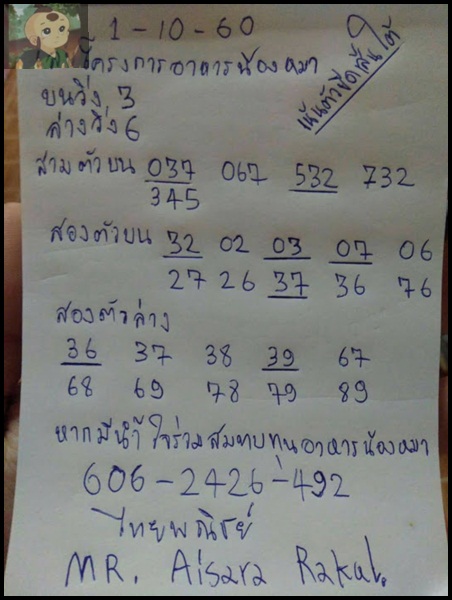 1-10-60
โครงการอาหารน้องหมา
เน้นตัวขีดเส้นใต้
บนวิ่ง 3
ล่างวิ่ง 6
สามตัวบน 037 067 532 732
345
สองตัวบน 32 02 03 07 06
27 26 37 36 76
สองตัวล่าง
36 37 38 39 67
68 69 78 79 89
หากมีน้ำใจร่วมสมทบทุนอาหารน้องหมา
606-2426-492
ไทยพณิชย์
MR. Aisara Rakul.